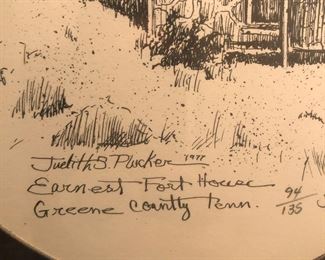 Judith B. Plucker 1977
Earnest Fort House
Greene County Tenn. 94/135